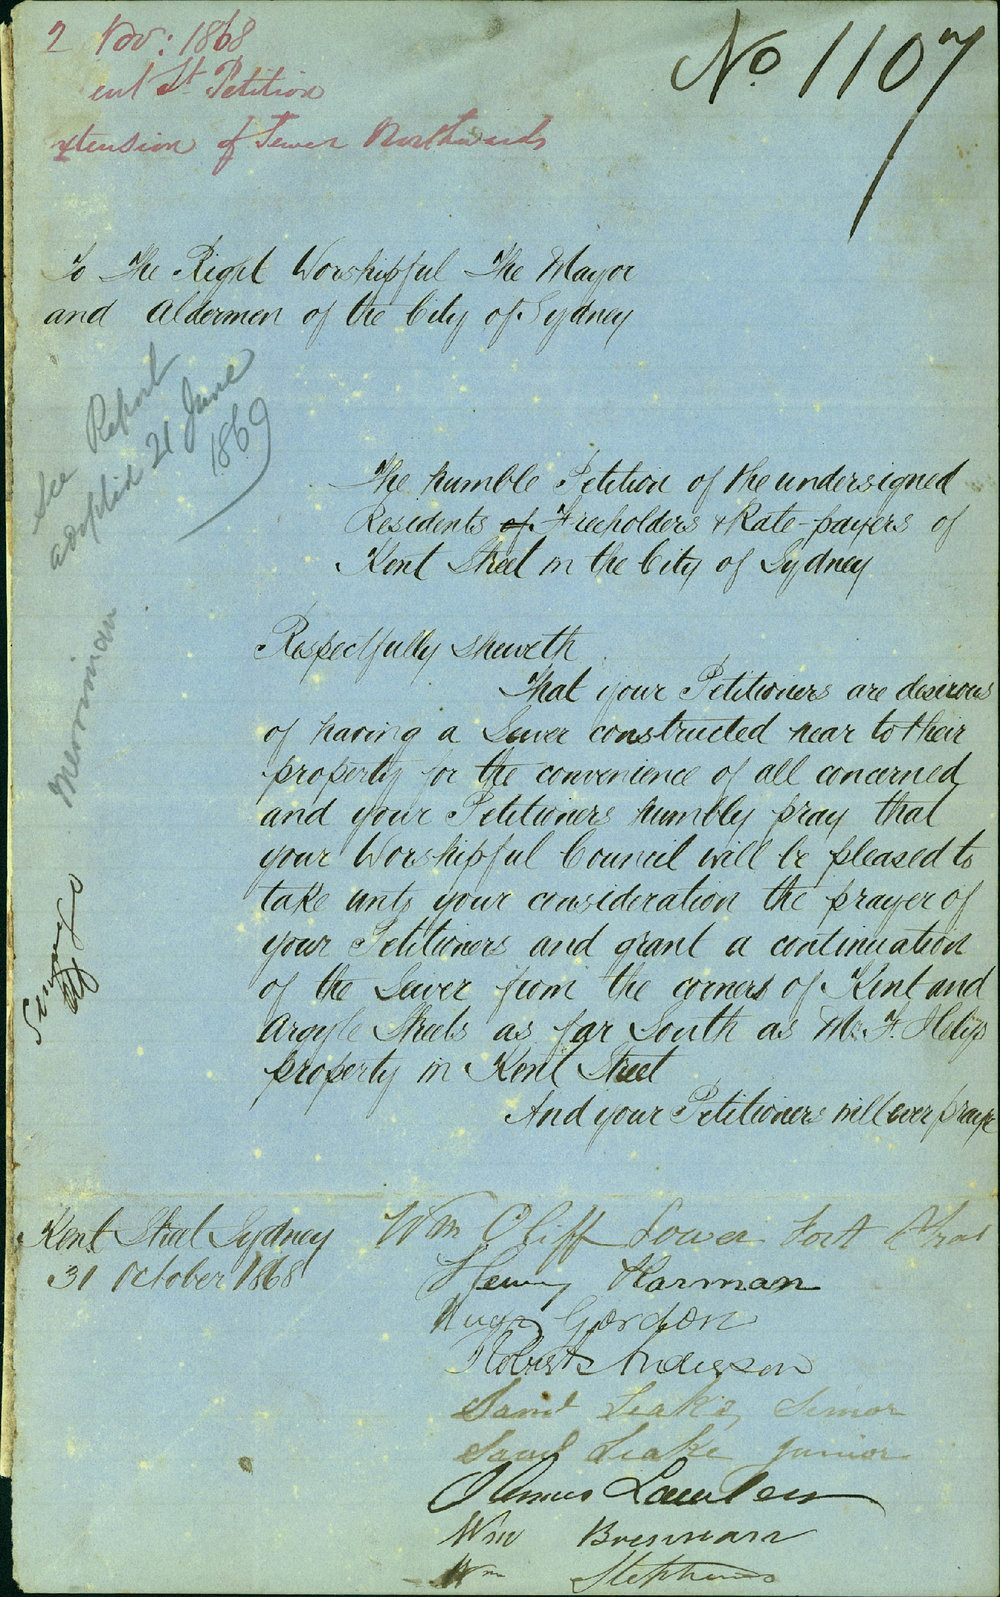 2 Nov: 1868
ent St. Petition
xtension of Sewer Northwards
No 1107
To The Right Worshipful The Mayor
and Aldermen of the City of Sydney
See Report
adopted 21 June
1869
Merriman
The humble Petition of the undersigned
Residents of Freeholders & Rate-payers of
Kent Street in the City of Sydney
Respectfully sheweth
That your Petitioners are desirous
of having a Sewer constructed near to their
property for the convenience of all concerned
and your Petitioners humbly pray that
your Worshipful Council will be pleased to
take unto your consideration the prayer of
your Petitioners and grant a continuation
of the Sewer from the corners of Kent and
Argyle Streets as far South as Mr. F.
property in Kent Street
And your Petitioners will ever pray
Kent Street Sydney
31 October 1868
Wm Cliff Lower Fort
Henry Harman
Hugh Gordon
Robert Anderson
Saml Leake, Senior
Saml Leake Junior
Wm Brennan
Wm Stephens